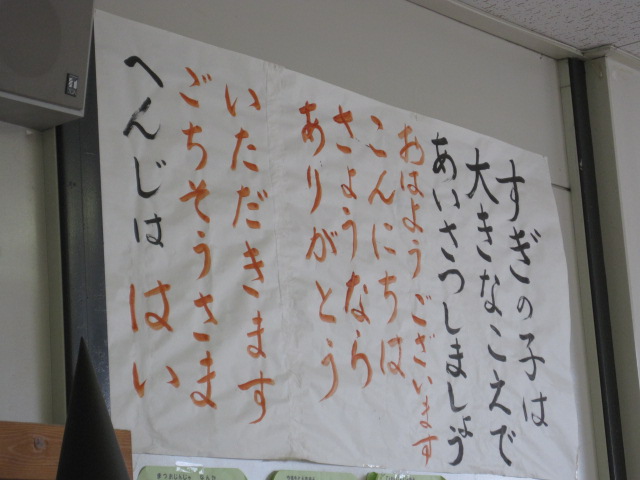 すぎの子は
大きなこえで
あいさつしましょう
おはようございます
こんにちは
さようなら
ありがとう
いただきます
ごちそうさま
へんじは はい